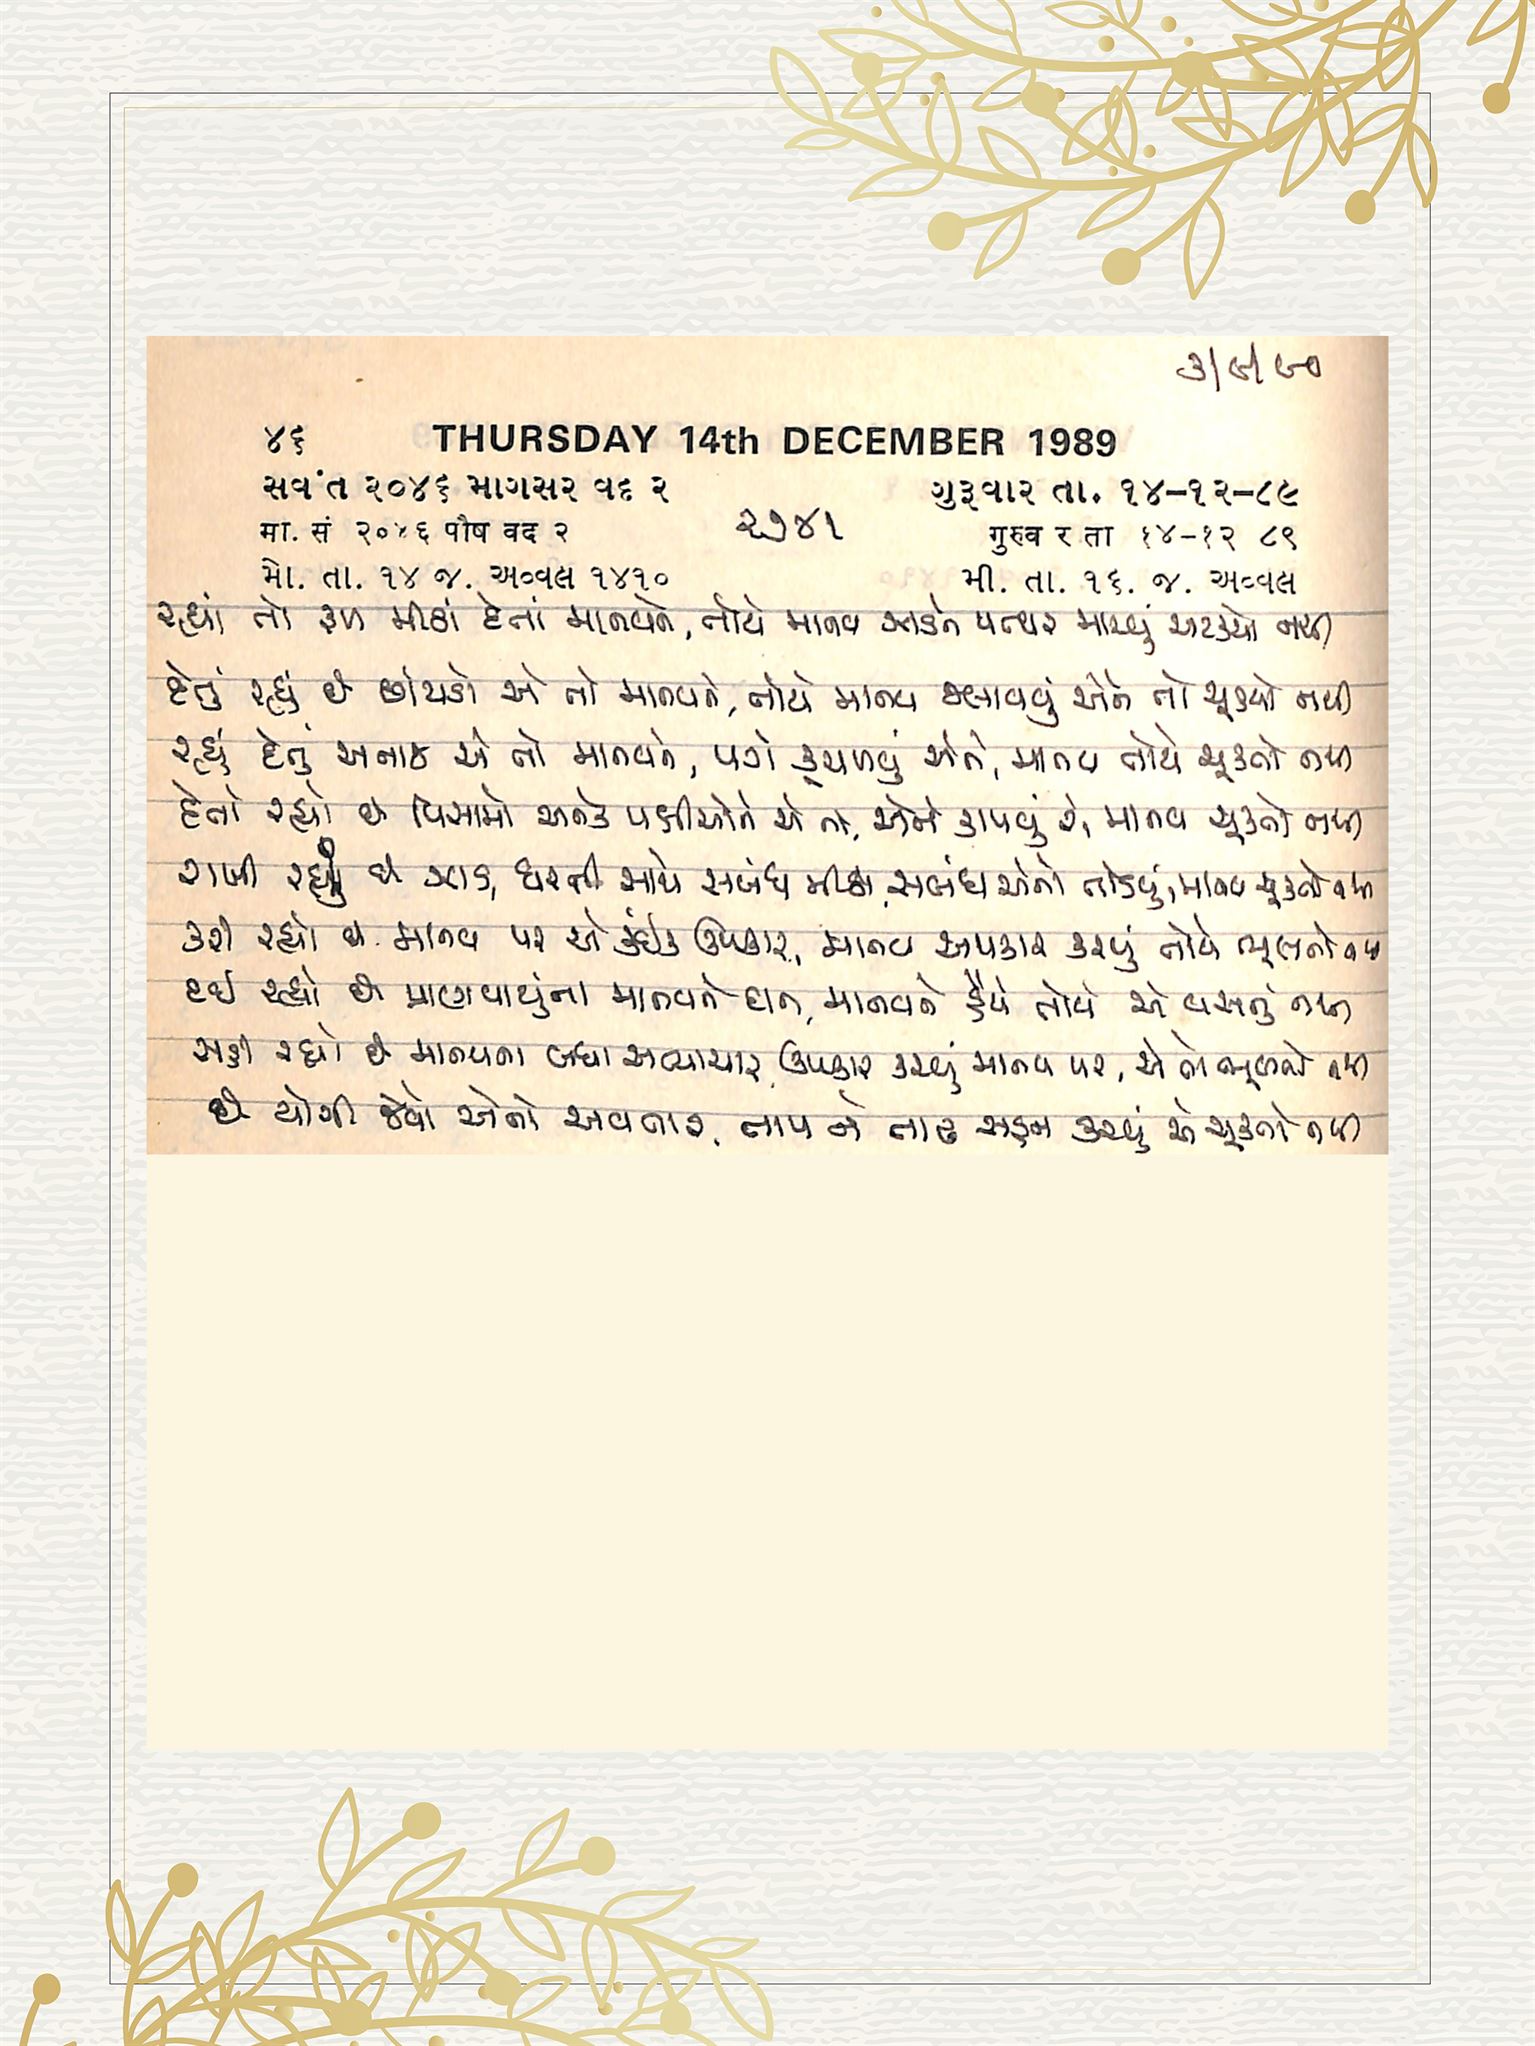 ૩/૯/૯૦
૪૬ THURSDAY 14th DECEMBER 1989
સવંત ૨૦૪૬ માગસર વદ ૨ ગુરૂવાર તા. ૧૪-૧૨-૮૯
मा. सं २०४६ पौष वद २ ૨૭૪૧ गुरुव र ता १४-१२ ८९
મૌ. તા. ૧૪ જ. અવ્વલ ૧૪૧૦ મી. તા. ૧૬. જ. અવ્વલ
રહ્યાં તો ફળ મીઠાં દેતાં માનવને, તોયે માનવ ઝાડને પથ્થર મારવું અટક્યો નથી
દેતું રહ્યું છે છાંયડો એ તો માનવને, તોયે માનવ જલાવવું એને તો ચૂક્યો નથી
રહ્યું દેતું અનાજ એ તો માનવને, પગે કચળવું એને, માનવ તોયે ચૂકતો નથી
દેતો રહ્યો છે વિસામો અનેક પક્ષીઓને એ તો, એને કાપવું રે, માનવ ચૂકતો નથી
રાખી રહ્યું છે ઝાડ, ધરતી સાથે સબંધ મીઠા, સબંધ એનો તોડવું, માનવ ચૂકતો નથી
કરી રહ્યો છે માનવ પર એ કંઈક ઉપકાર, માનવ અપકાર કરવું તોયે ભૂલતો નથી
દઈ રહ્યો છે પ્રાણવાયુંના માનવને દાન, માનવને હૈયે તોયે એ વસતું નથી
સહી રહ્યો છે માનવના બધા અત્યાચાર, ઉપકાર કરવું માનવ પર, એ તો ભૂલતો નથી
છે યોગી જેવો એનો અવતાર, તાપ ને તાઢ સહન કરવું એ ચૂકતો નથી